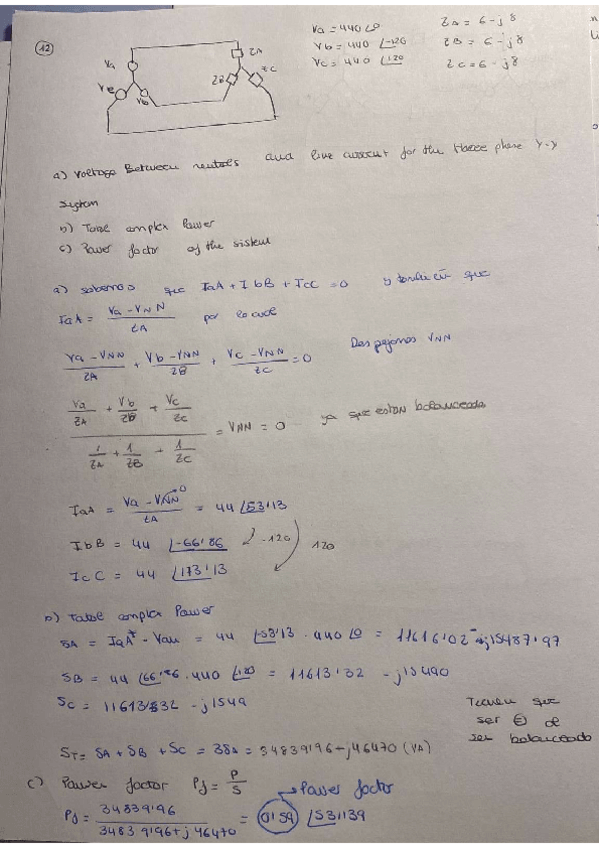 12
Va = 440 ∠0
ZA = 6 - j8
Vb = 440 ∠-120
ZB = 6 - j8
Vc = 440 ∠120
ZC = 6 - j8
ZA
Va
ZB
ZC
Vb
a) Voltage Between neutrals and line current for the three phase Y-Y
system
b) Total complex Power
c) Power factor of the sistem
a) sabemos que IaA + IbB + IcC = 0 y también que
IaA = (Va - VNN)/ZA por lo cual
(Va - VNN)/ZA + (Vb - VNN)/ZB + (Vc - VNN)/ZC = 0 Despejamos VNN
(Va/ZA + Vb/ZB + Vc/ZC)/(1/ZA + 1/ZB + 1/ZC) = VNN = 0 ya que estan balanceados
IaA = (Va - VNN)/ZA = 44 ∠53'13
0
IbB = 44 ∠-66'86
-120
120
IcC = 44 ∠173'13
b) Total complex Power
SA = IaA* · Van = 44 ∠-53'13 · 440 ∠0 = 11616'02 - j15487'97
SB = 44 ∠66'86 · 440 ∠120 = 11613'32 - j15490
SC = 11613'32 - j1549
Tienen que
ser = al
ser balanceado
ST = SA + SB + SC = 3SA = 34839'96 - j46470 (VA)
c) Power factor Pf = P/S
Power factor
Pf = 34839'96/(34839'96 + j46470) = 0'59 ∠53'139